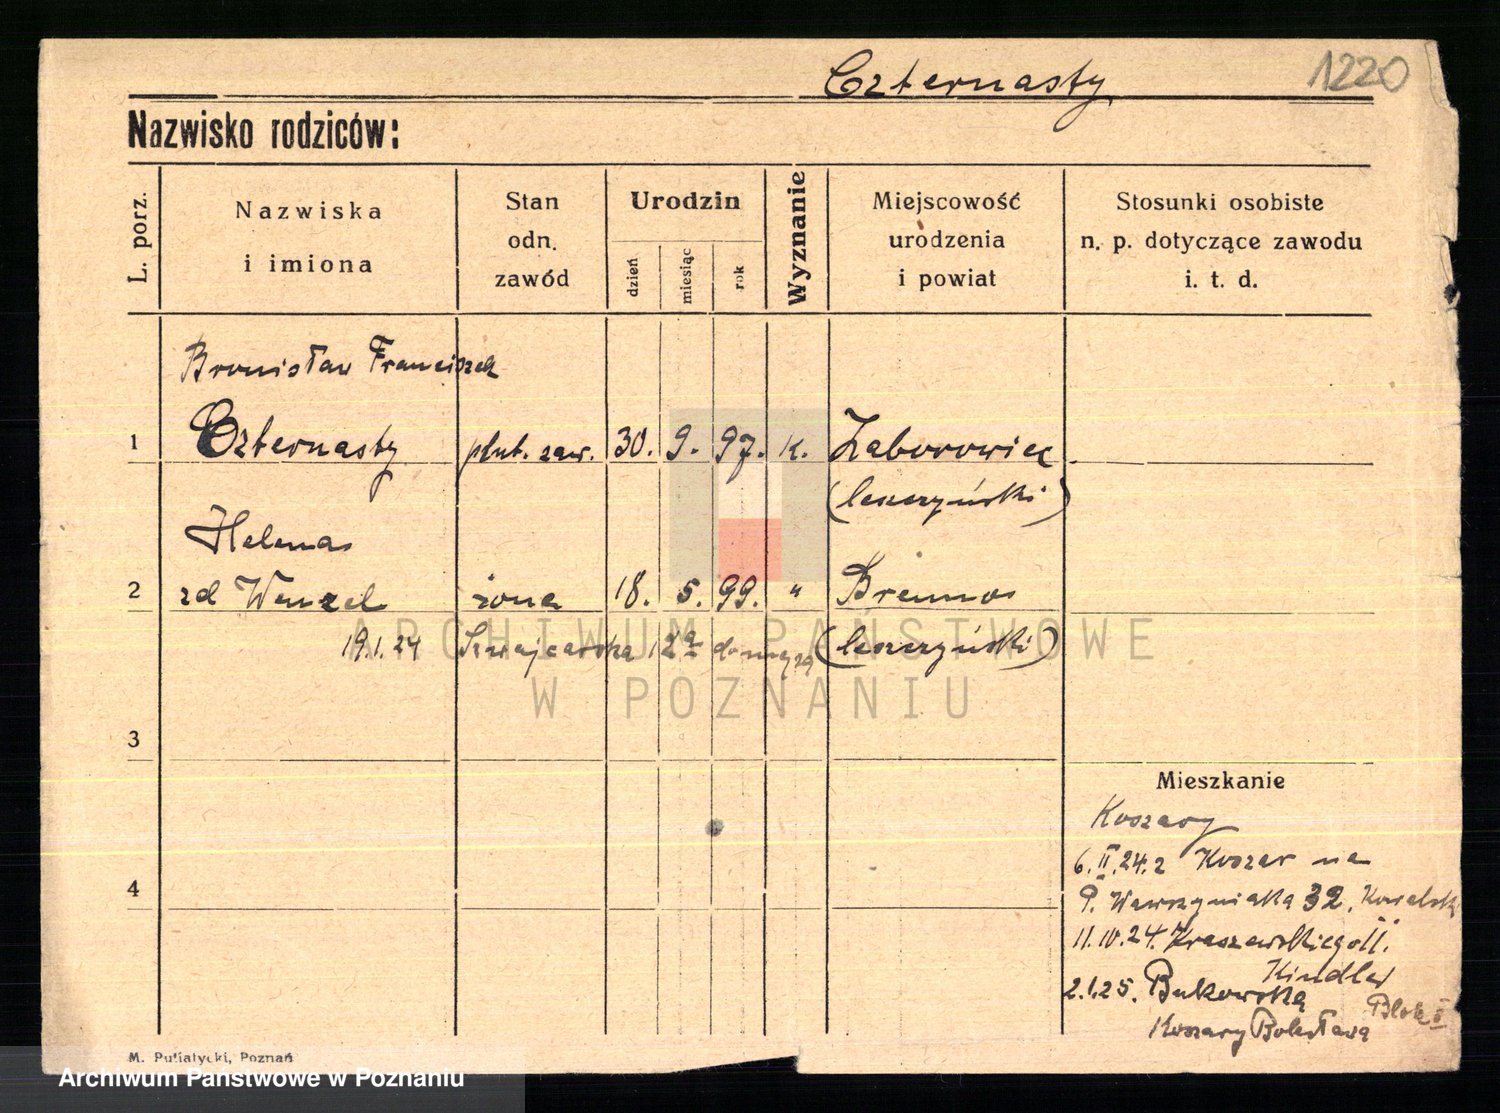 Czternasty
1220
Nazwisko rodziców:
L. porz.
Nazwiska
i imiona
Stan
odn.
zawód
Urodzin
dzień
miesiąc
rok
Wyznanie
Miejscowość
urodzenia
i powiat
Stosunki osobiste
n. p. dotyczące zawodu
i. t. d.
Bronisław Franciszek
1 Czternasty plut. zaw. 30. 9. 97. K. Zaborowiec
(leszczyński)
Helena
2 zd Wenzel żona 18. 5. 99. " Brenno
19.1.24 Szwajcarska 12a do męża (leszczyński)
ARCHIWUM PAŃSTWOWE
W POZNANIU
3
Mieszkanie
Koszary
6.II.24. z Koszar na
4
P. Wawrzyniaka 32, Kowalska
11.IV.24. Kraszewskiego 11.
Kindler
2.1.25. Bukowska
Blok I
Koszary Bolesława
M. Putiatycki, Poznań
Archiwum Państwowe w Poznaniu